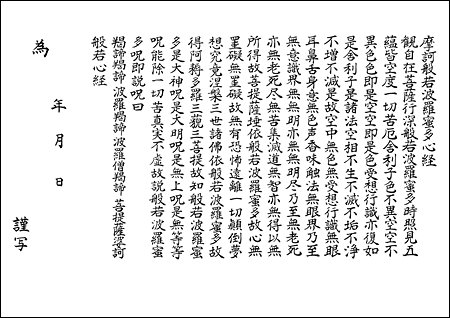 摩訶般若波羅蜜多心経
観自在菩薩行深般若波羅蜜多時照見五
蘊皆空度一切苦厄舎利子色不異空空不
異色色即是空空即是色受想行識亦復如
是舎利子是諸法空相不生不滅不垢不浄
不増不減是故空中無色無受想行識無眼
耳鼻舌身意無色声香味触法無眼界乃至
無意識界無無明亦無無明尽乃至無老死
亦無老死尽無苦集滅道無智亦無得以無
所得故菩提薩埵依般若波羅蜜多故心無
罣礙無罣礙故無有恐怖遠離一切顛倒夢
想究竟涅槃三世諸佛依般若波羅蜜多故
得阿耨多羅三藐三菩提故知般若波羅蜜
多是大神呪是大明呪是無上呪是無等等
呪能除一切苦真実不虚故説般若波羅蜜
多呪即説呪曰
羯諦羯諦 波羅羯諦 波羅僧羯諦 菩提薩婆訶
般若心経
年 月 日
為
謹写